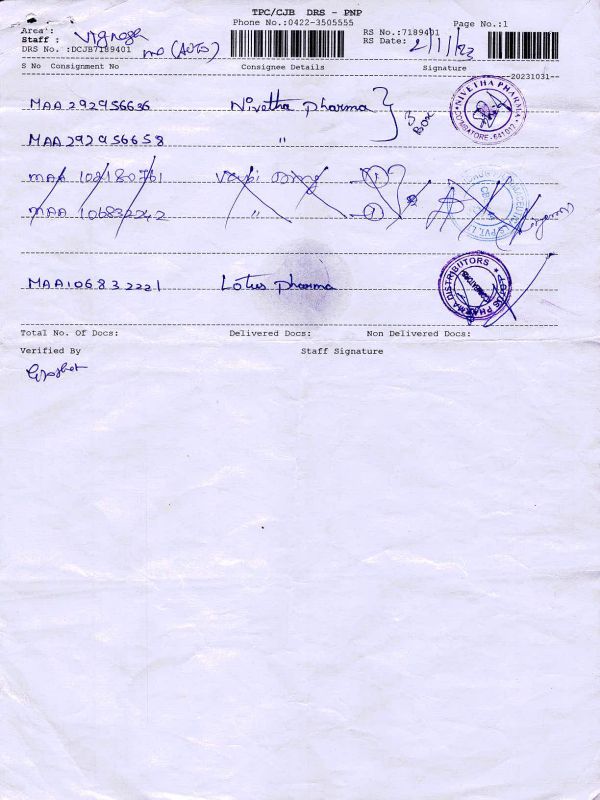 TPC/CJB DRS - PNP
Phone No.:0422-3505555
Page No.:1
Area :
Staff : Vignesh
DRS No. :DCJB7189401
(Auto)
RS No.:7189401
RS Date: 2/1/23
S No Consignment No Consignee Details Signature
--20231031--
MAA 292956636 Nivetha pharma } 3 Box
NIVETHA PHARMA
COIMBATORE - 641 012
MAA 292956658 "
MAA 102180761
MAA 106832242 "
MAA106832221 Lotus pharma
LOTUS PHARMA DISTRIBUTORS
Total No. Of Docs: Delivered Docs: Non Delivered Docs:
Verified By Staff Signature